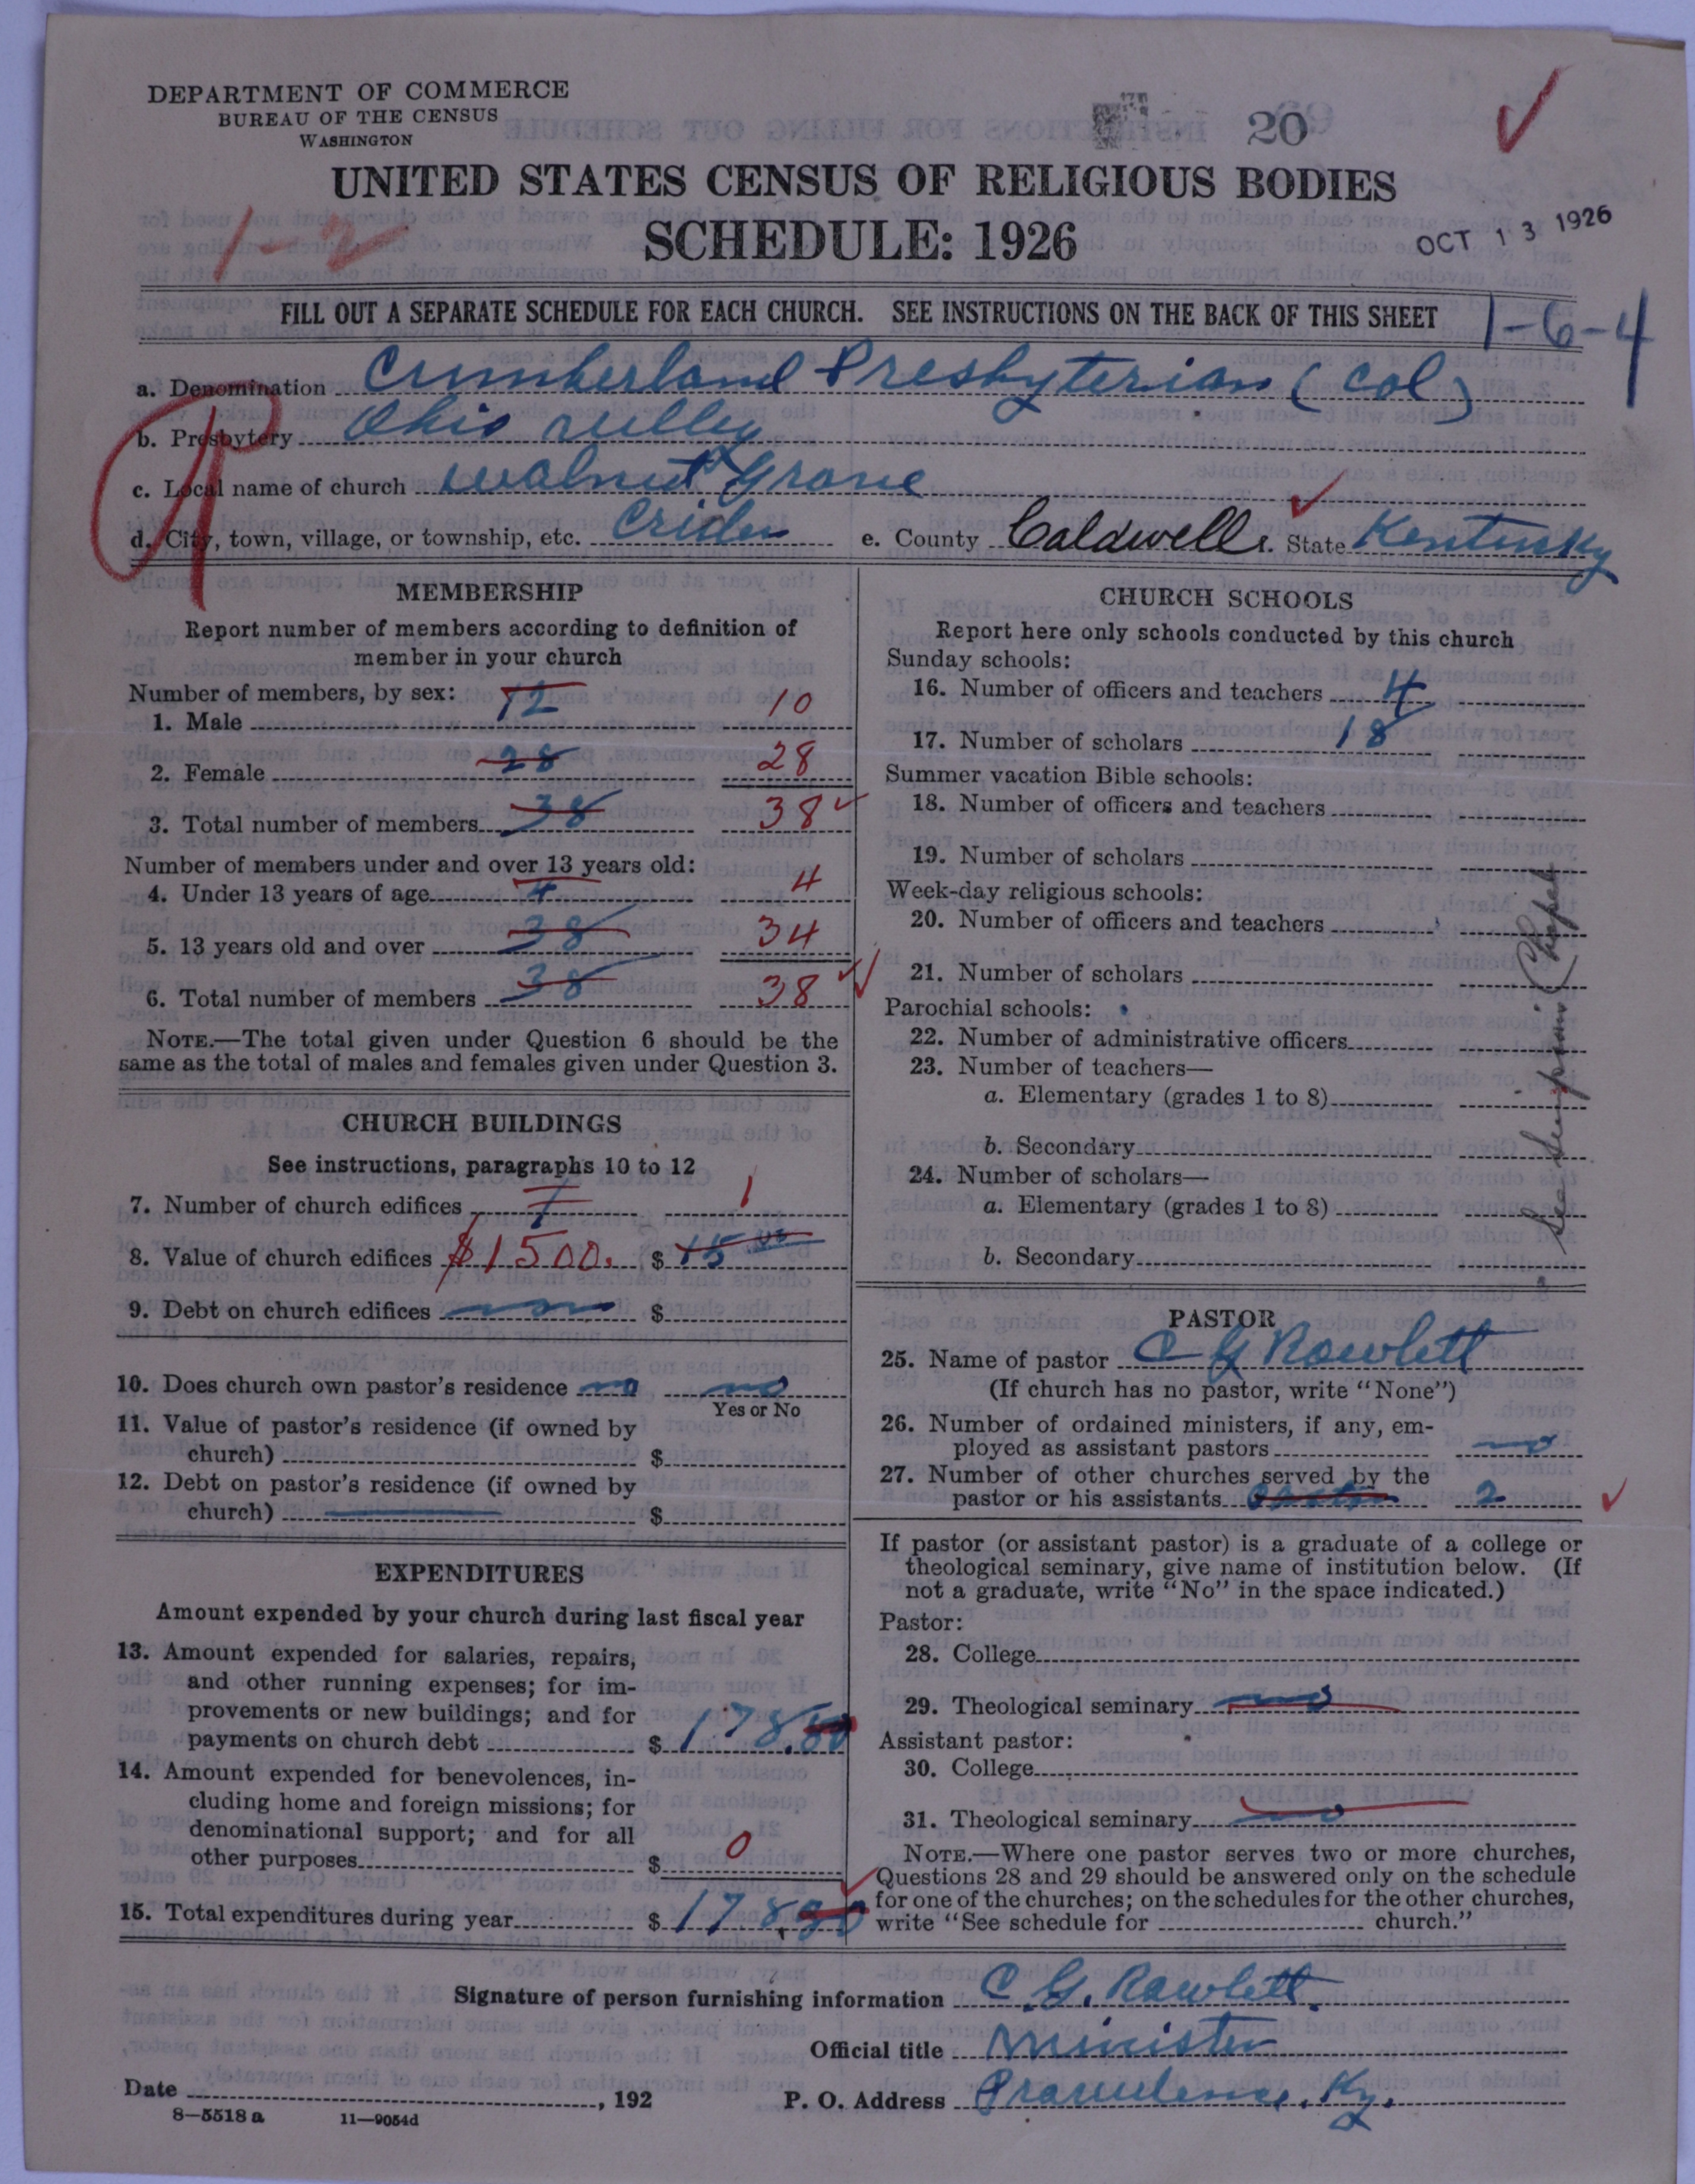 DEPARTMENT OF COMMERCE
BUREAU OF THE CENSUS
WASHINGTON
20
UNITED STATES CENSUS OF RELIGIOUS BODIES
SCHEDULE: 1926
1-2
OCT 13 1926
FILL OUT A SEPARATE SCHEDULE FOR EACH CHURCH. SEE INSTRUCTIONS ON THE BACK OF THIS SHEET
1-6-4
a. Denomination Cumberland Presbyterian (Col)
b. Presbytery Ohio
c. Local name of church Walnut Grove
d. City, town, village, or township, etc. Crider e. County Caldwell State Kentucky
MEMBERSHIP
Report number of members according to definition of
member in your church
Number of members, by sex:
1. Male 12 10
2. Female 28 28
3. Total number of members 38 38
Number of members under and over 13 years old:
4. Under 13 years of age 4 4
5. 13 years old and over 38 34
6. Total number of members 38 38
NOTE.—The total given under Question 6 should be the
same as the total of males and females given under Question 3.
CHURCH BUILDINGS
See instructions, paragraphs 10 to 12
7. Number of church edifices 1 1
8. Value of church edifices $1500. $ 15 00
9. Debt on church edifices $
10. Does church own pastor's residence no no
Yes or No
11. Value of pastor's residence (if owned by
church) $
12. Debt on pastor's residence (if owned by
church) $
EXPENDITURES
Amount expended by your church during last fiscal year
13. Amount expended for salaries, repairs,
and other running expenses; for im-
provements or new buildings; and for
payments on church debt $ 178.50
14. Amount expended for benevolences, in-
cluding home and foreign missions; for
denominational support; and for all
other purposes $ 0
15. Total expenditures during year $ 178.50
CHURCH SCHOOLS
Report here only schools conducted by this church
Sunday schools:
16. Number of officers and teachers 4
17. Number of scholars 18
Summer vacation Bible schools:
18. Number of officers and teachers
19. Number of scholars
Week-day religious schools:
20. Number of officers and teachers
21. Number of scholars
Parochial schools:
22. Number of administrative officers
23. Number of teachers—
a. Elementary (grades 1 to 8)
b. Secondary
24. Number of scholars—
a. Elementary (grades 1 to 8)
b. Secondary
See Chapel
PASTOR
25. Name of pastor C G Rowlett
(If church has no pastor, write "None")
26. Number of ordained ministers, if any, em-
ployed as assistant pastors no
27. Number of other churches served by the
pastor or his assistants 2
If pastor (or assistant pastor) is a graduate of a college or
theological seminary, give name of institution below. (If
not a graduate, write "No" in the space indicated.)
Pastor:
28. College
29. Theological seminary no
Assistant pastor:
30. College
31. Theological seminary no
NOTE.—Where one pastor serves two or more churches,
Questions 28 and 29 should be answered only on the schedule
for one of the churches; on the schedules for the other churches,
write "See schedule for church."
Signature of person furnishing information C. G. Rowlett.
Official title Minister
Date , 192 P. O. Address Providence, Ky.
8-5518 a 11-9054d